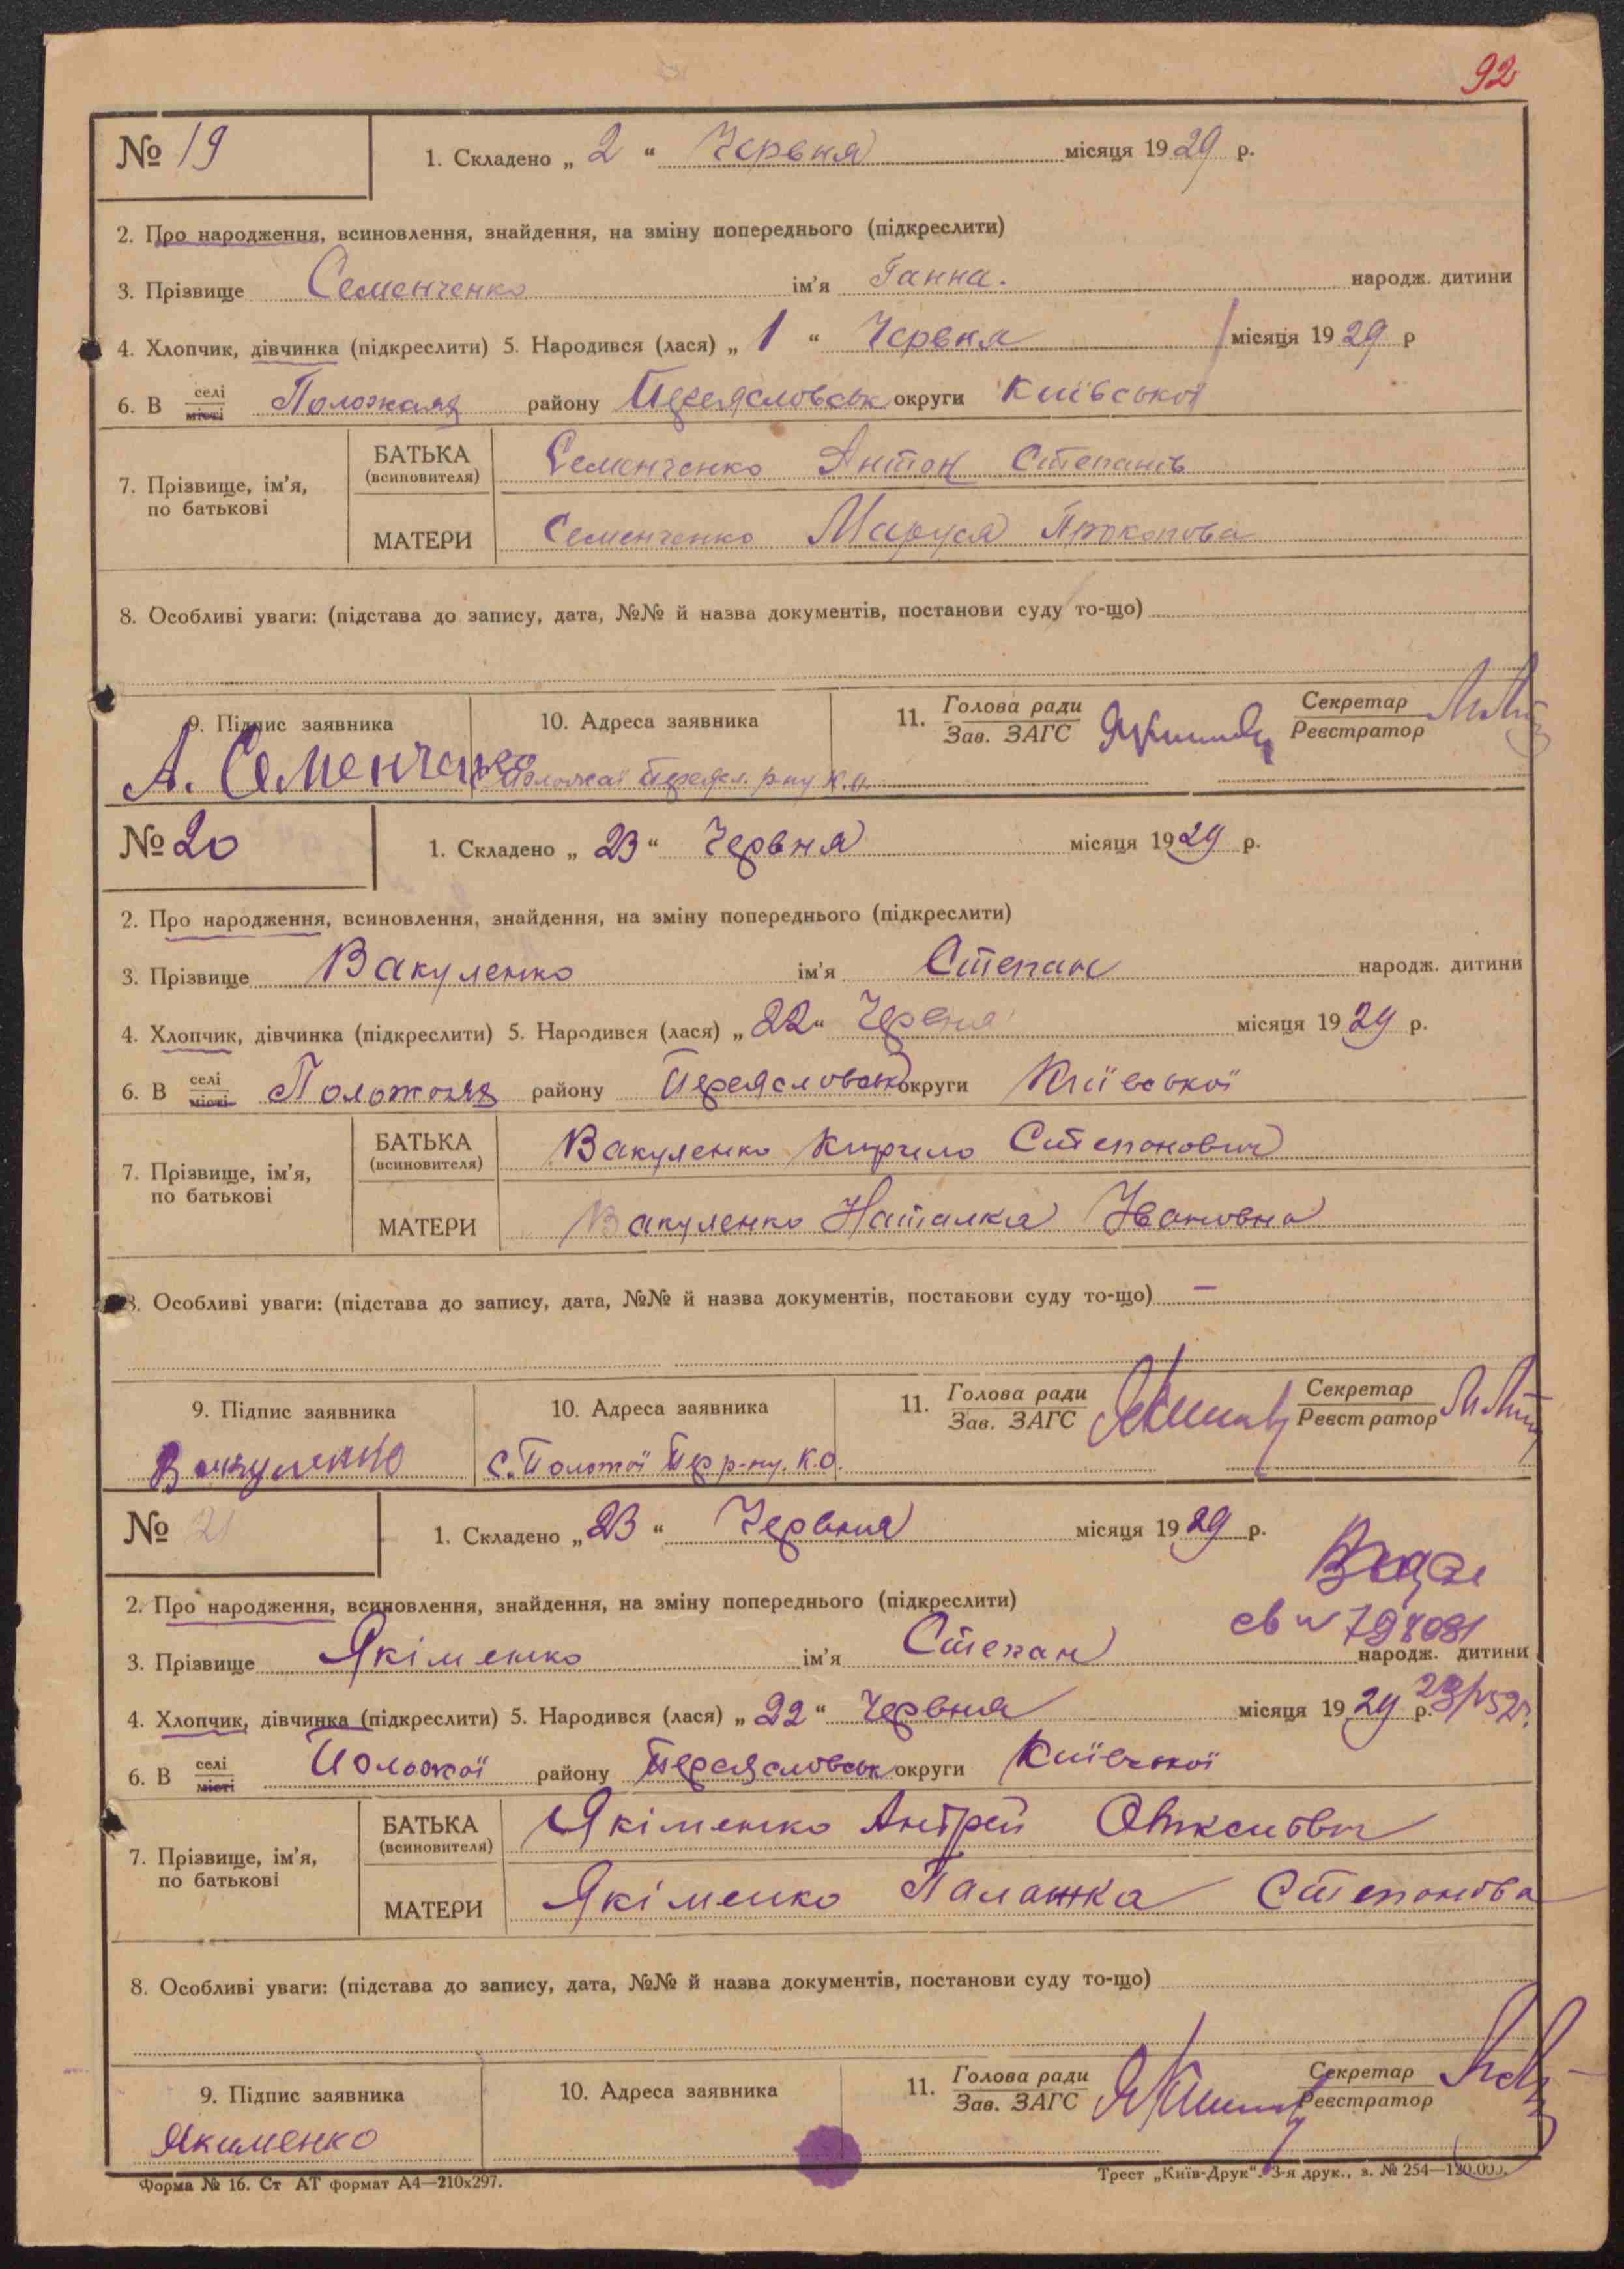 92
№ 19
1. Складено „ 2 “ Червня місяця 1929 р.
2. Про народження, всиновлення, знайдення, на зміну попереднього (підкреслити)
3. Прізвище Семенченко ім'я Ганна. народж. дитини
4. Хлопчик, дівчинка (підкреслити) 5. Народився (лася) „ 1 “ Червня місяця 1929 р
6. В селі місті району Переясловськ округи Київської
7. Прізвище, ім'я, по батькові
БАТЬКА (всиновителя) Семенченко Антон Степанів
МАТЕРИ Семенченко Маруся Прокопова
8. Особливі уваги: (підстава до запису, дата, №№ й назва документів, постанови суду то-що)
9. Підпис заявника 10. Адреса заявника 11. Голова ради Зав. ЗАГС Секретар Реєстратор
А. Семенченко Положаї Переясл. р-ну К.о.
№ 20
1. Складено „ 23 “ Червня місяця 1929 р.
2. Про народження, всиновлення, знайдення, на зміну попереднього (підкреслити)
3. Прізвище Вакуленко ім'я Степан народж. дитини
4. Хлопчик, дівчинка (підкреслити) 5. Народився (лася) „ 22 “ Червня місяця 1929 р.
6. В селі місті району Переясловськ округи Київської
7. Прізвище, ім'я, по батькові
БАТЬКА (всиновителя) Вакуленко Кирило Степонович
МАТЕРИ Вакуленко Наталка Івановна
8. Особливі уваги: (підстава до запису, дата, №№ й назва документів, постанови суду то-що) —
9. Підпис заявника 10. Адреса заявника 11. Голова ради Зав. ЗАГС Секретар Реєстратор
Вакуленко с. Положаї Пер р-ну. К.О.
№ 21
1. Складено „ 23 “ Червня місяця 1929 р.
2. Про народження, всиновлення, знайдення, на зміну попереднього (підкреслити)
св № 798081
3. Прізвище Якіменко ім'я Степан народж. дитини
4. Хлопчик, дівчинка (підкреслити) 5. Народився (лася) „ 22 “ Червня місяця 1929 р.
6. В селі місті Положої району Переясловськ округи Київської
7. Прізвище, ім'я, по батькові
БАТЬКА (всиновителя) Якіменко Андрей
МАТЕРИ Якіменко Палажка Степонова
8. Особливі уваги: (підстава до запису, дата, №№ й назва документів, постанови суду то-що)
9. Підпис заявника 10. Адреса заявника 11. Голова ради Зав. ЗАГС Секретар Реєстратор
Якименко
Форма № 16. Ст АТ формат А4—210х297. Трест „Київ-Друк“. 3-я друк., з. № 254—120.000.